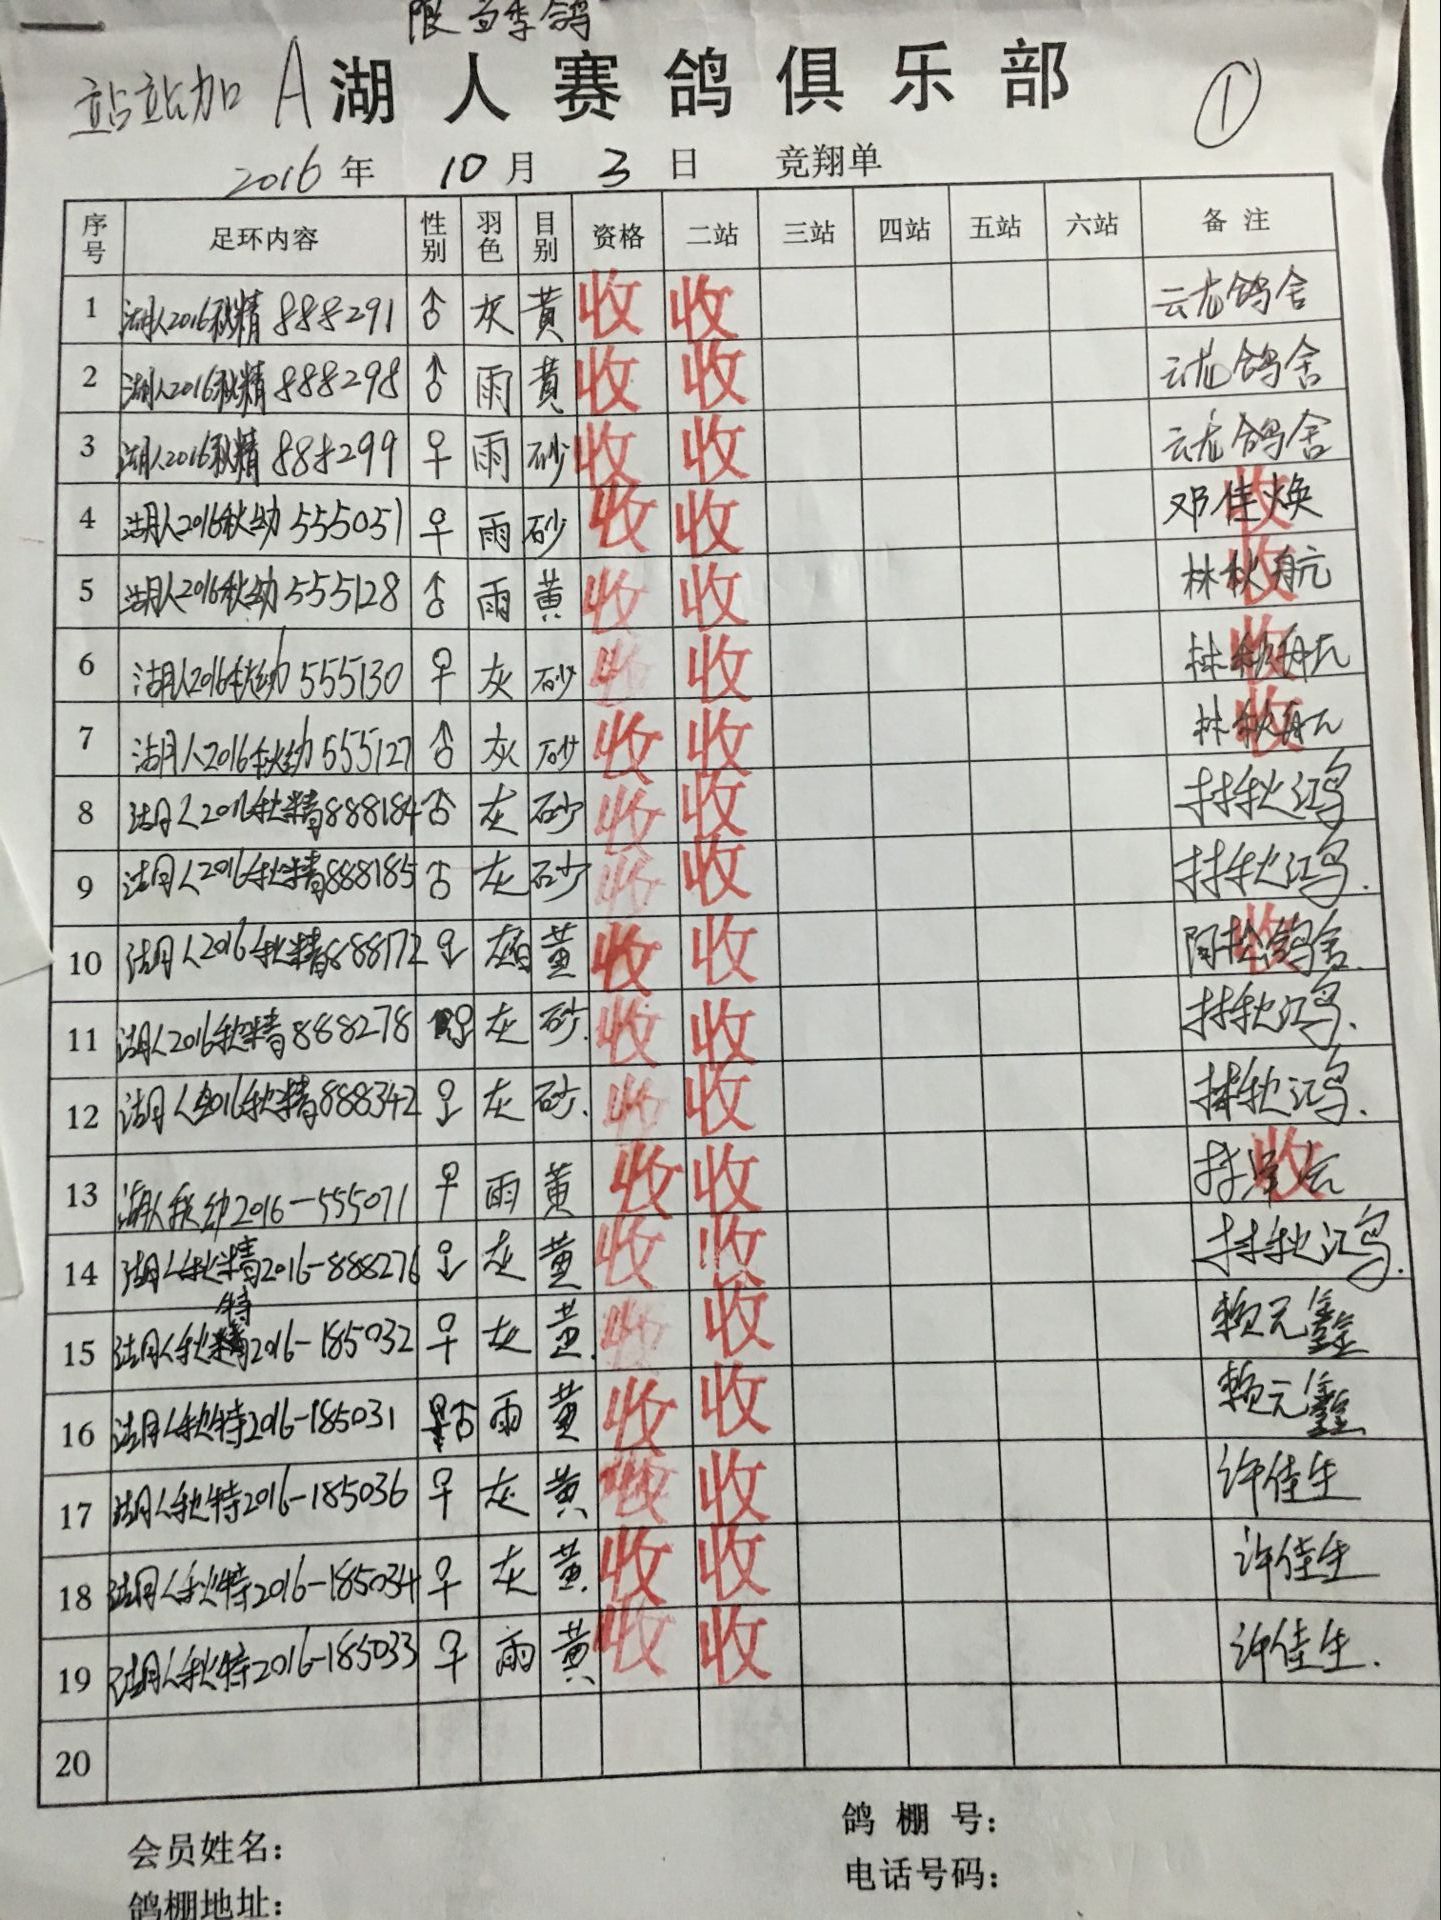 限当季鸽
站站加 A 湖人赛鸽俱乐部 ①
2016 年 10 月 3 日 竞翔单
序号 足环内容 性别 羽色 目别 资格 二站 三站 四站 五站 六站 备注
1 湖人2016秋精 888291 ♂ 灰 黄 收 收 云龙鸽舍
2 湖人2016秋精 888298 ♂ 雨 黄 收 收 云龙鸽舍
3 湖人2016秋精 888299 ♀ 雨 砂 收 收 云龙鸽舍
4 湖人2016秋幼 555051 ♀ 雨 砂 收 收 邓佳焕 收
5 湖人2016秋幼 555128 ♂ 雨 黄 收 收 林秋航 收
6 湖人2016秋幼 555130 ♀ 灰 砂 收 收 林秋航 收
7 湖人2016秋幼 555127 ♂ 灰 砂 收 收 林秋航 收
8 湖人2016秋精888184 ♂ 灰 砂 收 收 林秋鸿
9 湖人2016秋精888185 ♂ 灰 砂 收 收 林秋鸿.
10 湖人2016秋精888172 ♀ 黄 收 收 阿松鸽舍. 收
11 湖人2016秋精888278 ♀ 灰 砂. 收 收 林秋鸿.
12 湖人2016秋精888342 ♀ 灰 砂. 收 收 林秋鸿.
13 湖人秋幼2016-555071 ♀ 雨 黄 收 收 收
14 湖人秋精2016-888276 ♀ 灰 黄 收 收 林秋鸿.
15 湖人秋特2016-185032 ♀ 灰 黄. 收 收 赖元鑫
16 湖人秋特2016-185031 ♂ 雨 黄 收 收 赖元鑫
17 湖人秋特2016-185036 ♀ 灰 黄 收 收 许佳生
18 湖人秋特2016-185034 ♀ 灰 黄. 收 收 许佳生
19 湖人秋特2016-185033 ♀ 雨 黄 收 收 许佳生.
20
会员姓名： 鸽棚号：
鸽棚地址： 电话号码：